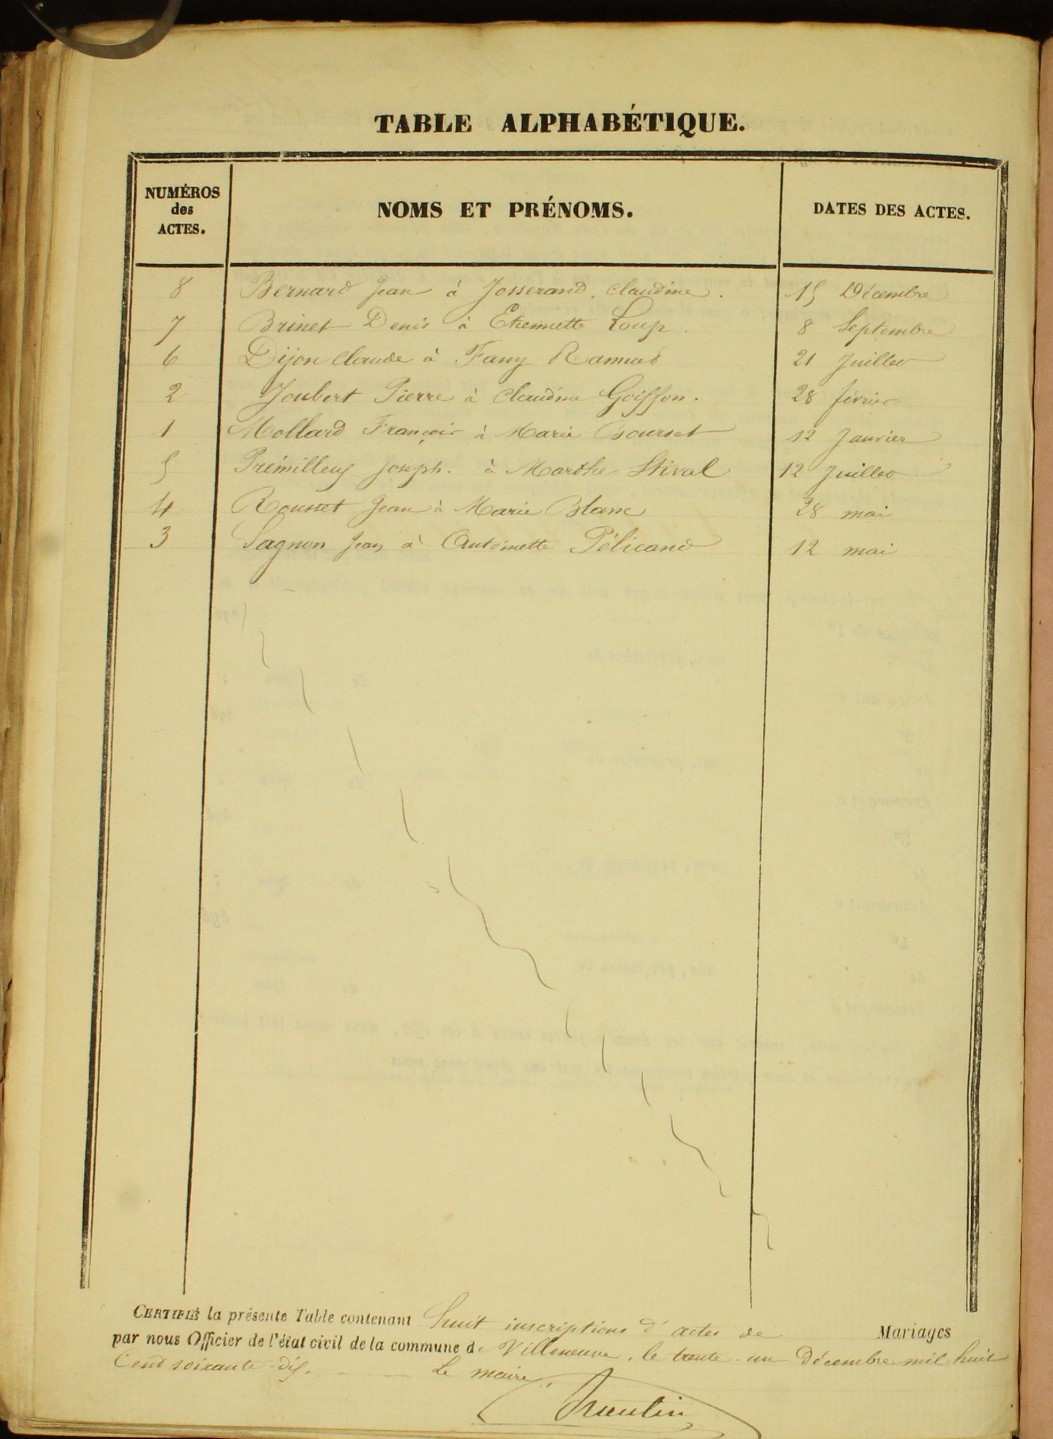 TABLE ALPHABÉTIQUE.
NUMÉROS
des
ACTES.
NOMS ET PRÉNOMS.
DATES DES ACTES.
8 Bernard Jean à Josserand Claudine. 15 Décembre
7 Brinet Denis à Etiennette Loup. 8 Septembre
6 Dijon Claude à Fany 21 Juillet
2 Joubert Pierre à Claudine Goiffon. 28 février
1 Mollard François à Marie Bourset 12 Janvier
5 Prémilleux Joseph. à Marthe Stival 12 Juillet
4 Rousset Jean à Marie Blanc 28 mai
3 Sagnon Jean à Antoinette Pélicand 12 mai
CERTIFIÉ la présente Table contenant huit inscriptions d'actes de Mariages
par nous Officier de l'état civil de la commune de Villeneuve, le trente-un Décembre mil huit
Cent soixante-dix. Le maire,